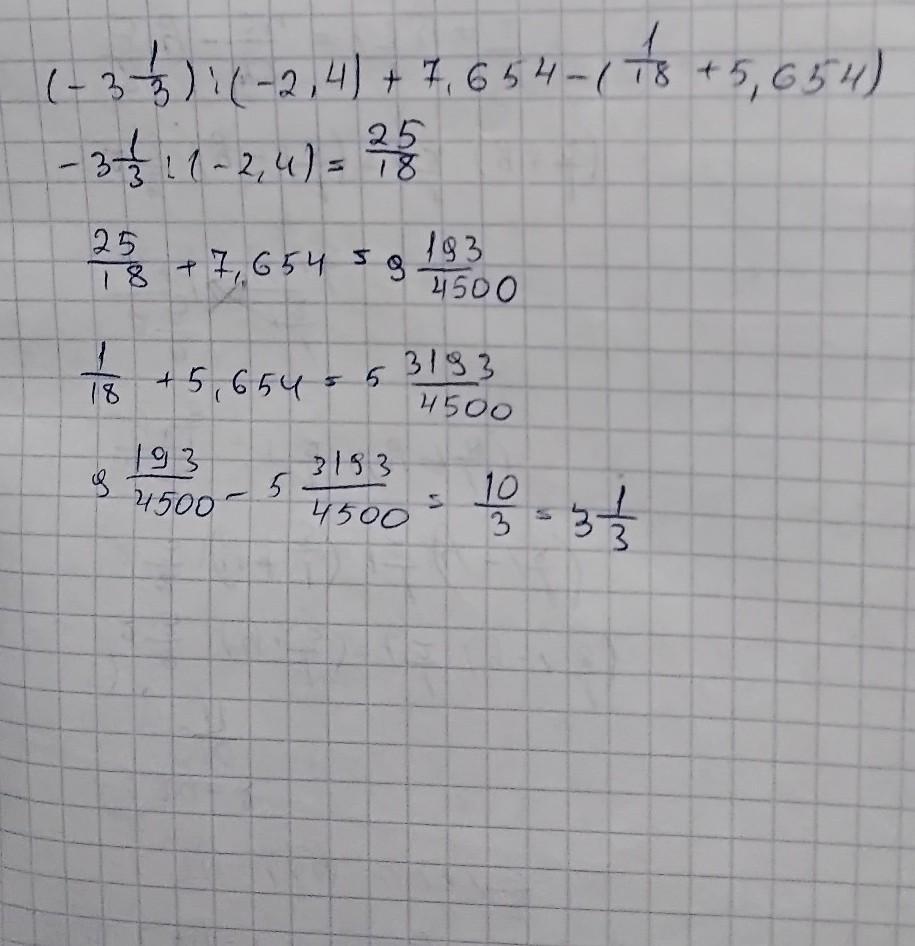 (-3 1/3) : (-2,4) + 7,654 - (1/18 + 5,654)
-3 1/3 : (-2,4) = 25/18
25/18 + 7,654 = 9 193/4500
1/18 + 5,654 = 5 3193/4500
9 193/4500 - 5 3193/4500 = 10/3 = 3 1/3